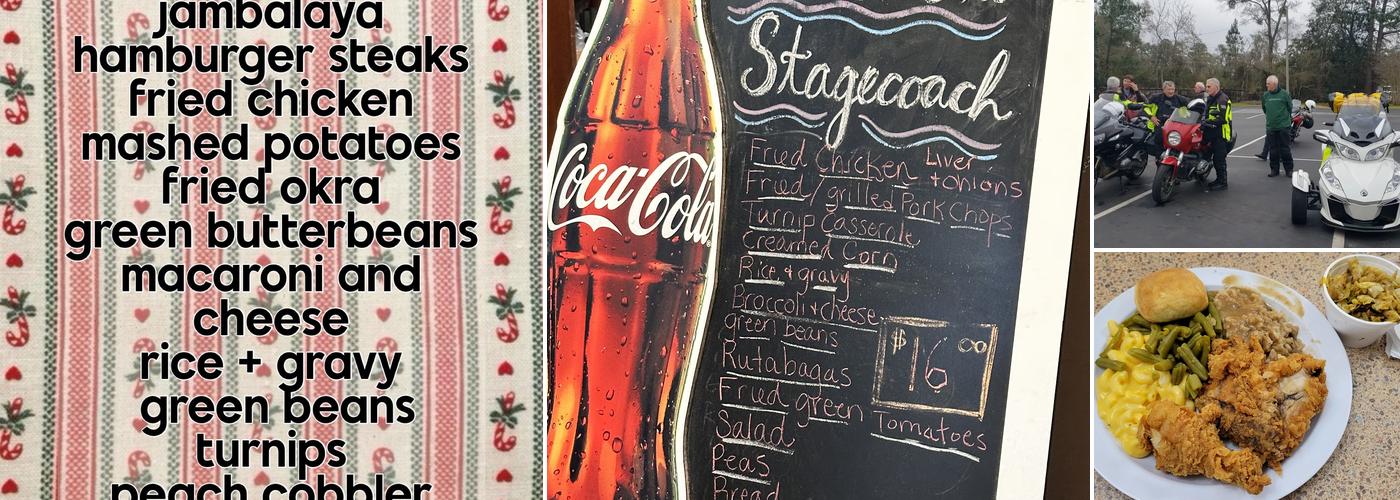 jambalaya
hamburger steaks
fried chicken
mashed potatoes
fried okra
green butterbeans
macaroni and
cheese
rice + gravy
green beans
turnips
peach cobbler
Coca-Cola
Stagecoach
Fried Chicken Liver
+ onions
Fried/grilled Pork Chops
Turnip Casserole
Creamed Corn
Rice + gravy
Broccoli + cheese
green beans
$16 00
Rutabagas
Fried green Tomatoes
Salad
Peas
Bread